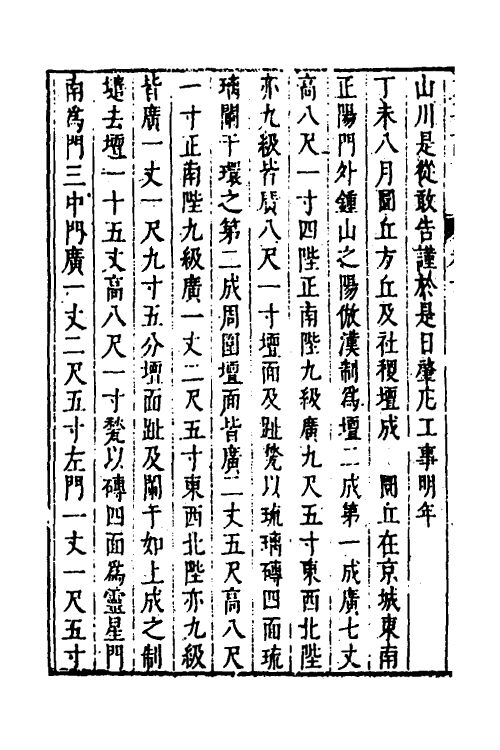 山川是從敢告謹於是日肇庀工事明年
丁未八月圜丘方丘及社稷壇成　圜丘在京城東南
正陽門外鍾山之陽倣漢制爲壇二成第一成廣七丈
高八尺一寸四陛正南陛九級廣九尺五寸東西北陛
亦九級皆廣八尺一寸壇面及趾甃以琉璃磚四面琉
璃闌干環之第二成周圍壇面皆廣二丈五尺高八尺
一寸正南陛九級廣一丈二尺五寸東西北陛亦九級
皆廣一丈一尺九寸五分壇面趾及闌干如上成之制
壝去壇一十五丈高八尺一寸甃以磚四面爲靈星門
南爲門三中門廣一丈二尺五寸左門一丈一尺五寸